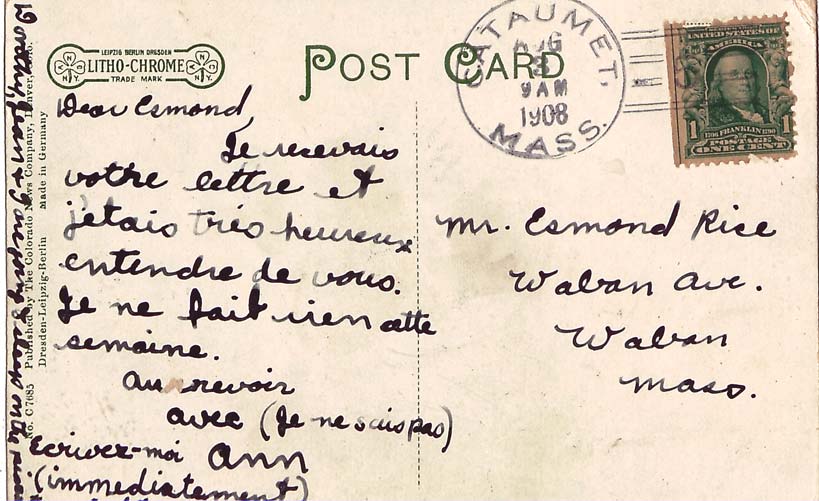 LEIPZIG BERLIN DRESDEN
LITHO-CHROME
TRADE MARK
N D
N.Y.
N D
N.Y.
POST CARD
CATAUMET,
AUG
9 AM
1908
MASS.
UNITED STATES OF
AMERICA
1 1
1706 FRANKLIN 1790
POSTAGE
ONE CENT
Dear Esmond,
Je recevais
votre lettre et
j'etais très heureux
entendre de vous.
Je ne fait rien cette
semaine.
au revoir
avec (Je ne sais pas)
Ecrivez-moi Ann
(immediatement)
Mr. Esmond Rice
Waban Ave.
Waban
Mass.
No. C 7685 Published by The Colorado News Company, Denver,
Dresden-Leipzig-Berlin Made in Germany
Dorothy, Jean & I are going to sleep on the